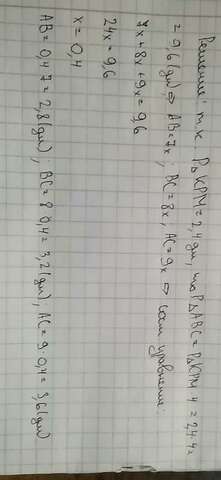 Решение: т.к. P△KPM = 2,4 дм, то P△ABC = P△KPM · 4 = 2,4·4=
= 9,6 (дм) ⇒ AB=7x; BC=8x, AC=9x ⇒ сост уравнение:
7x+8x+9x=9,6
24x=9,6
x=0,4
AB=0,4·7=2,8(дм); BC=8·0,4=3,2(дм), AC=9·0,4=3,6(дм)